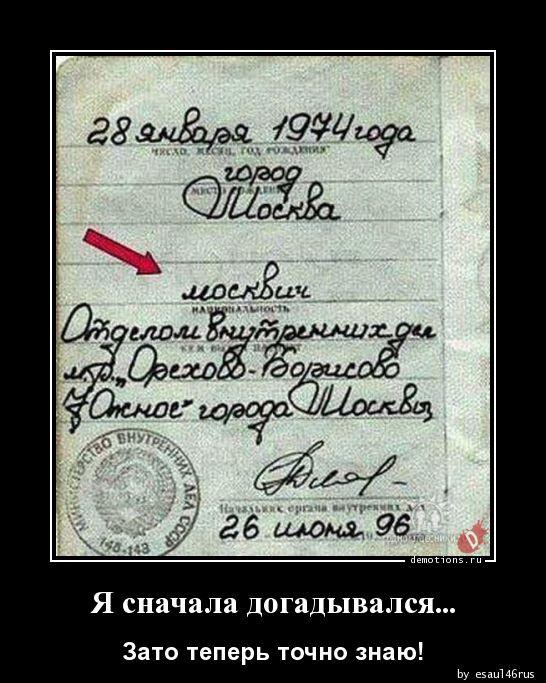 28 января 1974 года
ЧИСЛО, МЕСЯЦ, ГОД РОЖДЕНИЯ
город
МЕСТО РОЖДЕНИЯ
Москва
москвич
НАЦИОНАЛЬНОСТЬ
Отделом внутренних дел
КЕМ ВЫДАН ПАСПОРТ
м/р. „Орехово-Борисово
Южное" города Москвы
МИНИСТЕРСТВО ВНУТРЕННИХ ДЕЛ СССР
148-143
Начальник органа внутренних дел
26 июня 96
19
demotions.ru
Я сначала догадывался...
Зато теперь точно знаю!
by esaul46rus